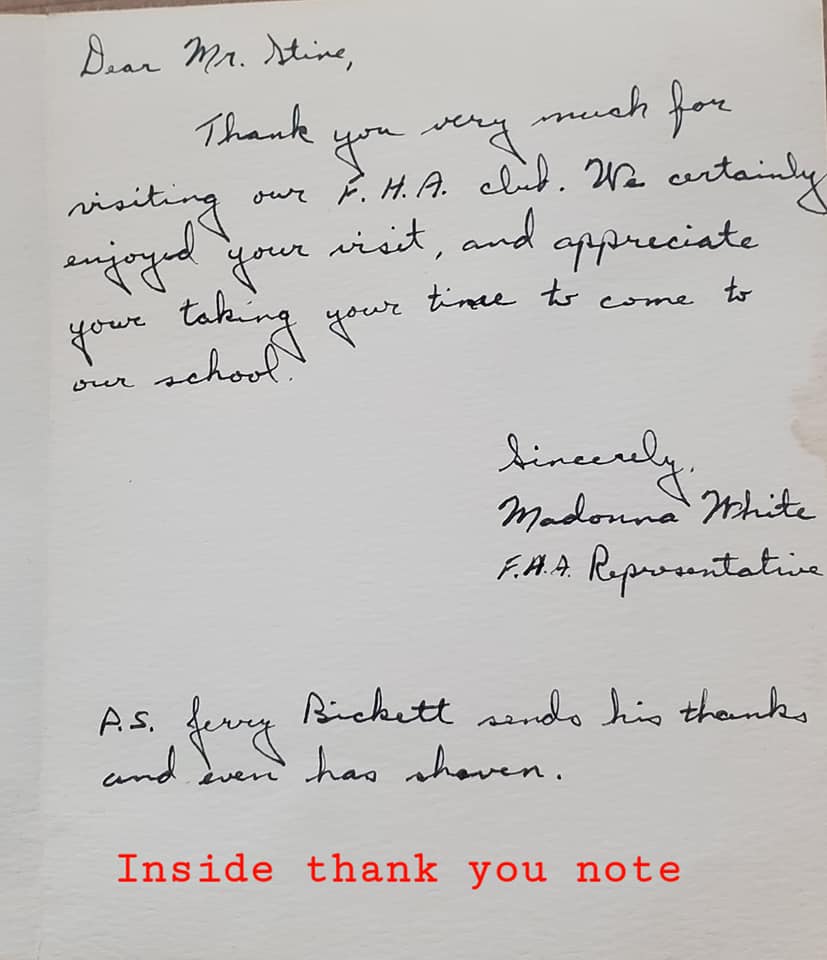 Dear Mr. Stine,
Thank you very much for
visiting our F.H.A. club. We certainly
enjoyed your visit, and appreciate
your taking your time to come to
our school.
Sincerely,
Madonna White
F.H.A. Representative
P.S. Jerry Bickett sends his thanks
and even has shaven.
Inside thank you note